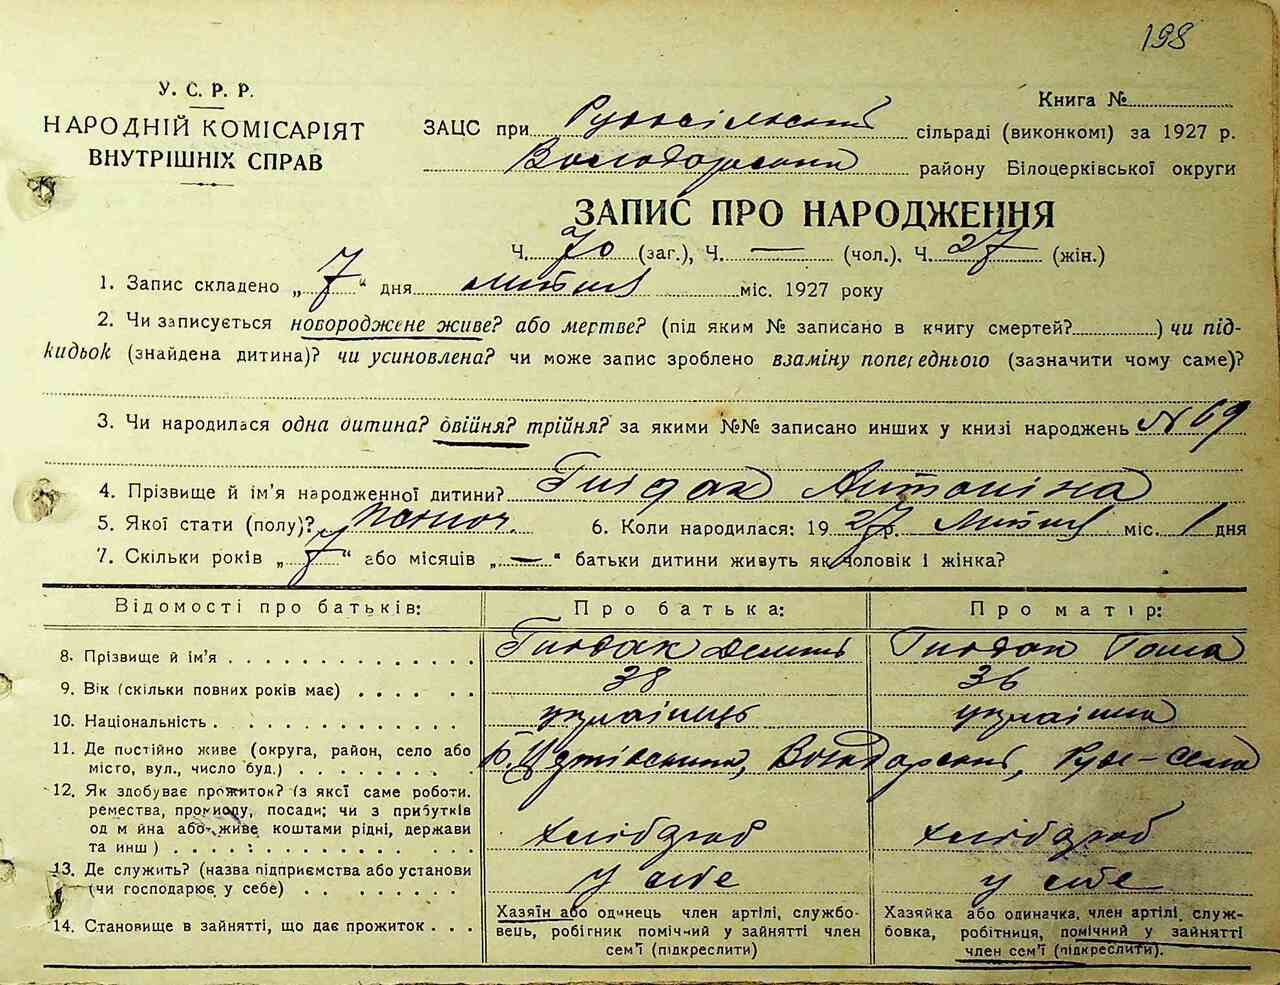 198
У. С. Р. Р.
НАРОДНІЙ КОМІСАРІЯТ
ВНУТРІШНІХ СПРАВ
Книга №
ЗАЦС при Рудосільський сільраді (виконкомі) за 1927 р.
Володарський району Білоцерківської округи
ЗАПИС ПРО НАРОДЖЕННЯ
Ч. 70 (заг.), Ч. — (чол.), Ч. 27 (жін.)
1. Запис складено „7" дня лютий міс. 1927 року
2. Чи записується новороджене живе? або мертве? (під яким № записано в книгу смертей? ) чи під-
кидьок (знайдена дитина)? чи усиновлена? чи може запис зроблено взаміну попереднього (зазначити чому саме)?
3. Чи народилася одна дитина? двійня? трійня? за якими №№ записано инших у книзі народжень № 69
4. Прізвище й ім'я народженної дитини? Гнідак Антоніна
5. Якої стати (полу)? жіноч. 6. Коли народилася: 1927 р. Лютий міс. 1 дня
7. Скільки років „7" або місяців „—" батьки дитини живуть як чоловік і жінка?
Відомості про батьків: Про батька: Про матір:
8. Прізвище й ім'я Гнідак Гнідак
9. Вік (скільки повних років має) 38 36
10. Національність українець українка
11. Де постійно живе (округа, район, село або
місто, вул., число буд.) Б. Церківський, Володарський, Руде-Село
12. Як здобуває прожиток? (з якої саме роботи,
ремества, промислу, посади; чи з прибутків
од майна або живе коштами рідні, держави
та инш) хлібороб хлібороб
13. Де служить? (назва підприємства або установи
(чи господарює у себе) у себе у себе
14. Становище в зайнятті, що дає прожиток
Хазяїн або одинець член артілі, службо-
вець, робітник помічний у зайнятті член
сем'ї (підкреслити)
Хазяйка або одиначка, член артілі, служ-
бовка, робітниця, помічний у зайнятті
член сем'ї (підкреслити).